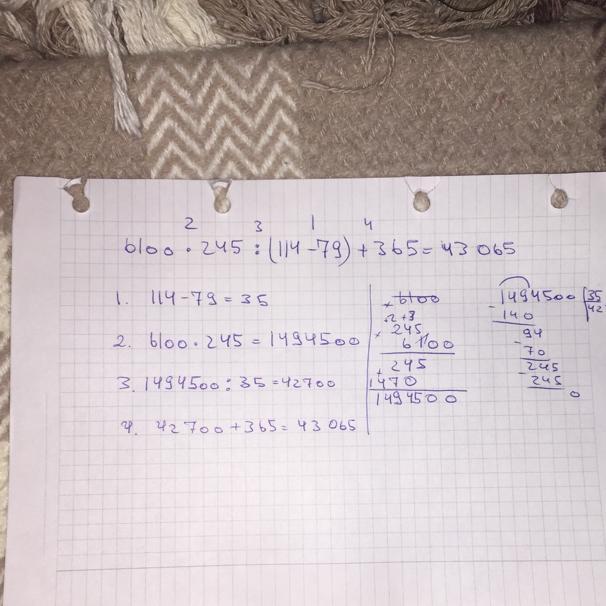 2 3 1 4
6100 · 245 : (114 - 79) + 365 = 43 065
1. 114 - 79 = 35
2. 6100 · 245 = 1494500
3. 1494500 : 35 = 42700
4. 42 700 + 365 = 43 065
× 6100
2 + 3
× 245
6100
+ 245
1470
1494500
1494500 | 35
- 140 | 42
94
- 70
245
- 245
0